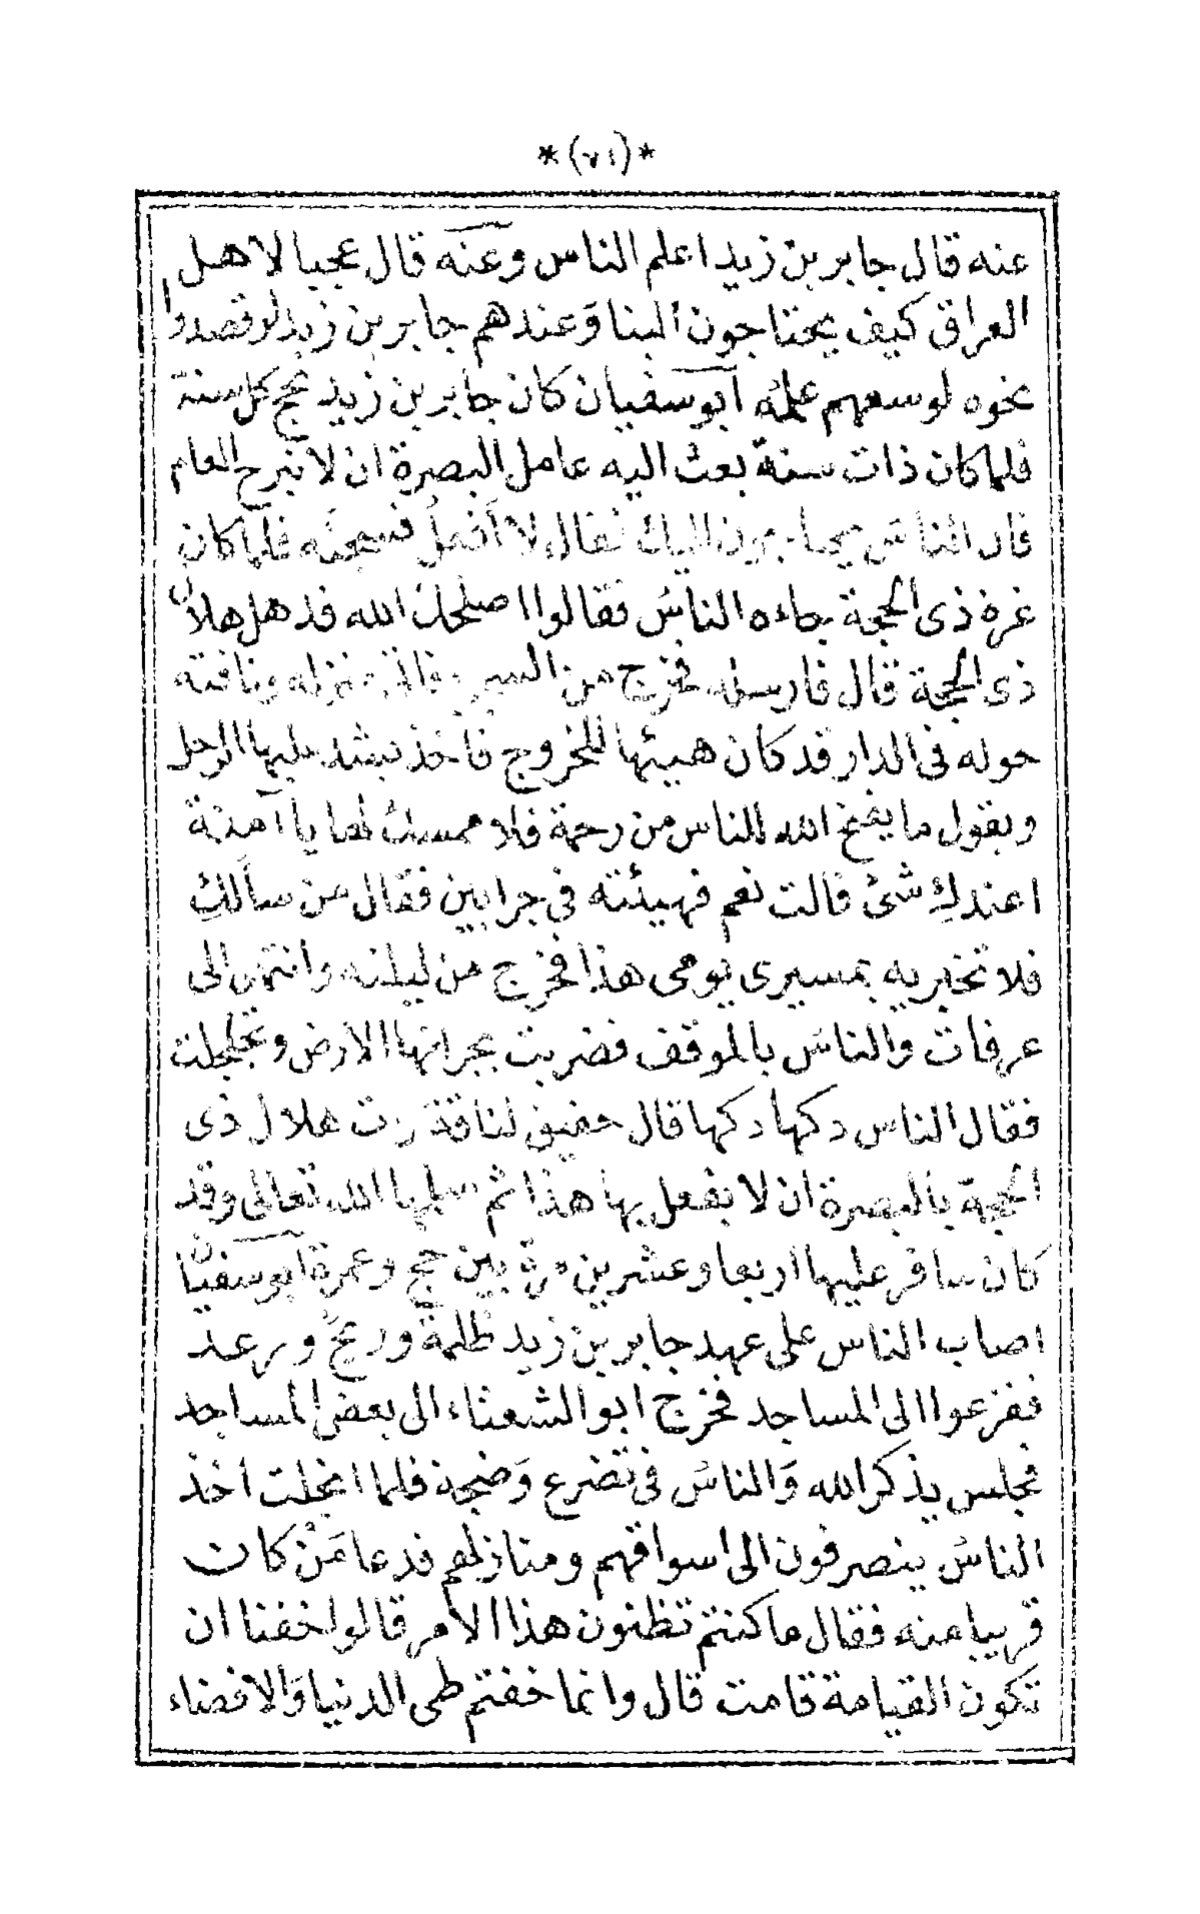 *(٧١)*
عنه قال جابر بن زيد اعلم الناس وعنه قال عجبا لاهل
العراق كيف يحتاجون الينا وَعندهم جابر بن زيد لو قصدوا
نحوه لوسعهم علمُه ابو سفيان كان جابر بن زيد يحج كل سنة
فلما كان ذات سنة بعث اليه عامل البصرة ان لا تبرح العام
فان الناسَ يحتاجون اليك فقال لا أفعلُ فسجنه فلما كان
غرة ذى الحجة جاءه الناسُ فقالوا اصلحك الله قد هل هلالُ
ذى الحجة قال فارسله فخرج من السجن فاتى منزله وناقته
حوله فى الدار قد كان هيئها للخروج فأخذ يشد عليها الرحل
ويقول ما يفتح الله للناس من رحمة فلا ممسك لها يا آمنة
اعندكِ شئ قالت نعم فهيئته فى جرابين فقال من سألكِ
فلا تخبريه بمسيرى يومى هذا فخرج من ليلته وانتهى الى
عرفات والناسُ بالموقف فضربت بجرانها الارض وتجلجلت
فقال الناس ذكها ذكها قال حقيق لناقة رأت هلال ذى
الحجة بالبصرة ان لا يفعل بها هذا ثم سلمها الله تعالى وقد
كان سافر عليها اربعا وعشرين مرة بين حج وعمرة ابو سفيان
اصاب الناس على عهد جابر بن زيد ظُلمة وريحٌ ورعد
ففزعوا الى المساجد فخرج ابو الشعثاء الى بعض المساجد
فجلس يذكر الله وَالناسُ فى تضرع وَضجة فلما انجلت أخذ
الناسُ ينصرفون الى اسواقهم ومنازلهم فدعا مَنْ كان
قريبا منه فقال ما كنتم تظنون هذا الأمر قالوا خفنا ان
تكون القيامة قامت قال وانما خفتم طى الدنيا وَالافضاء